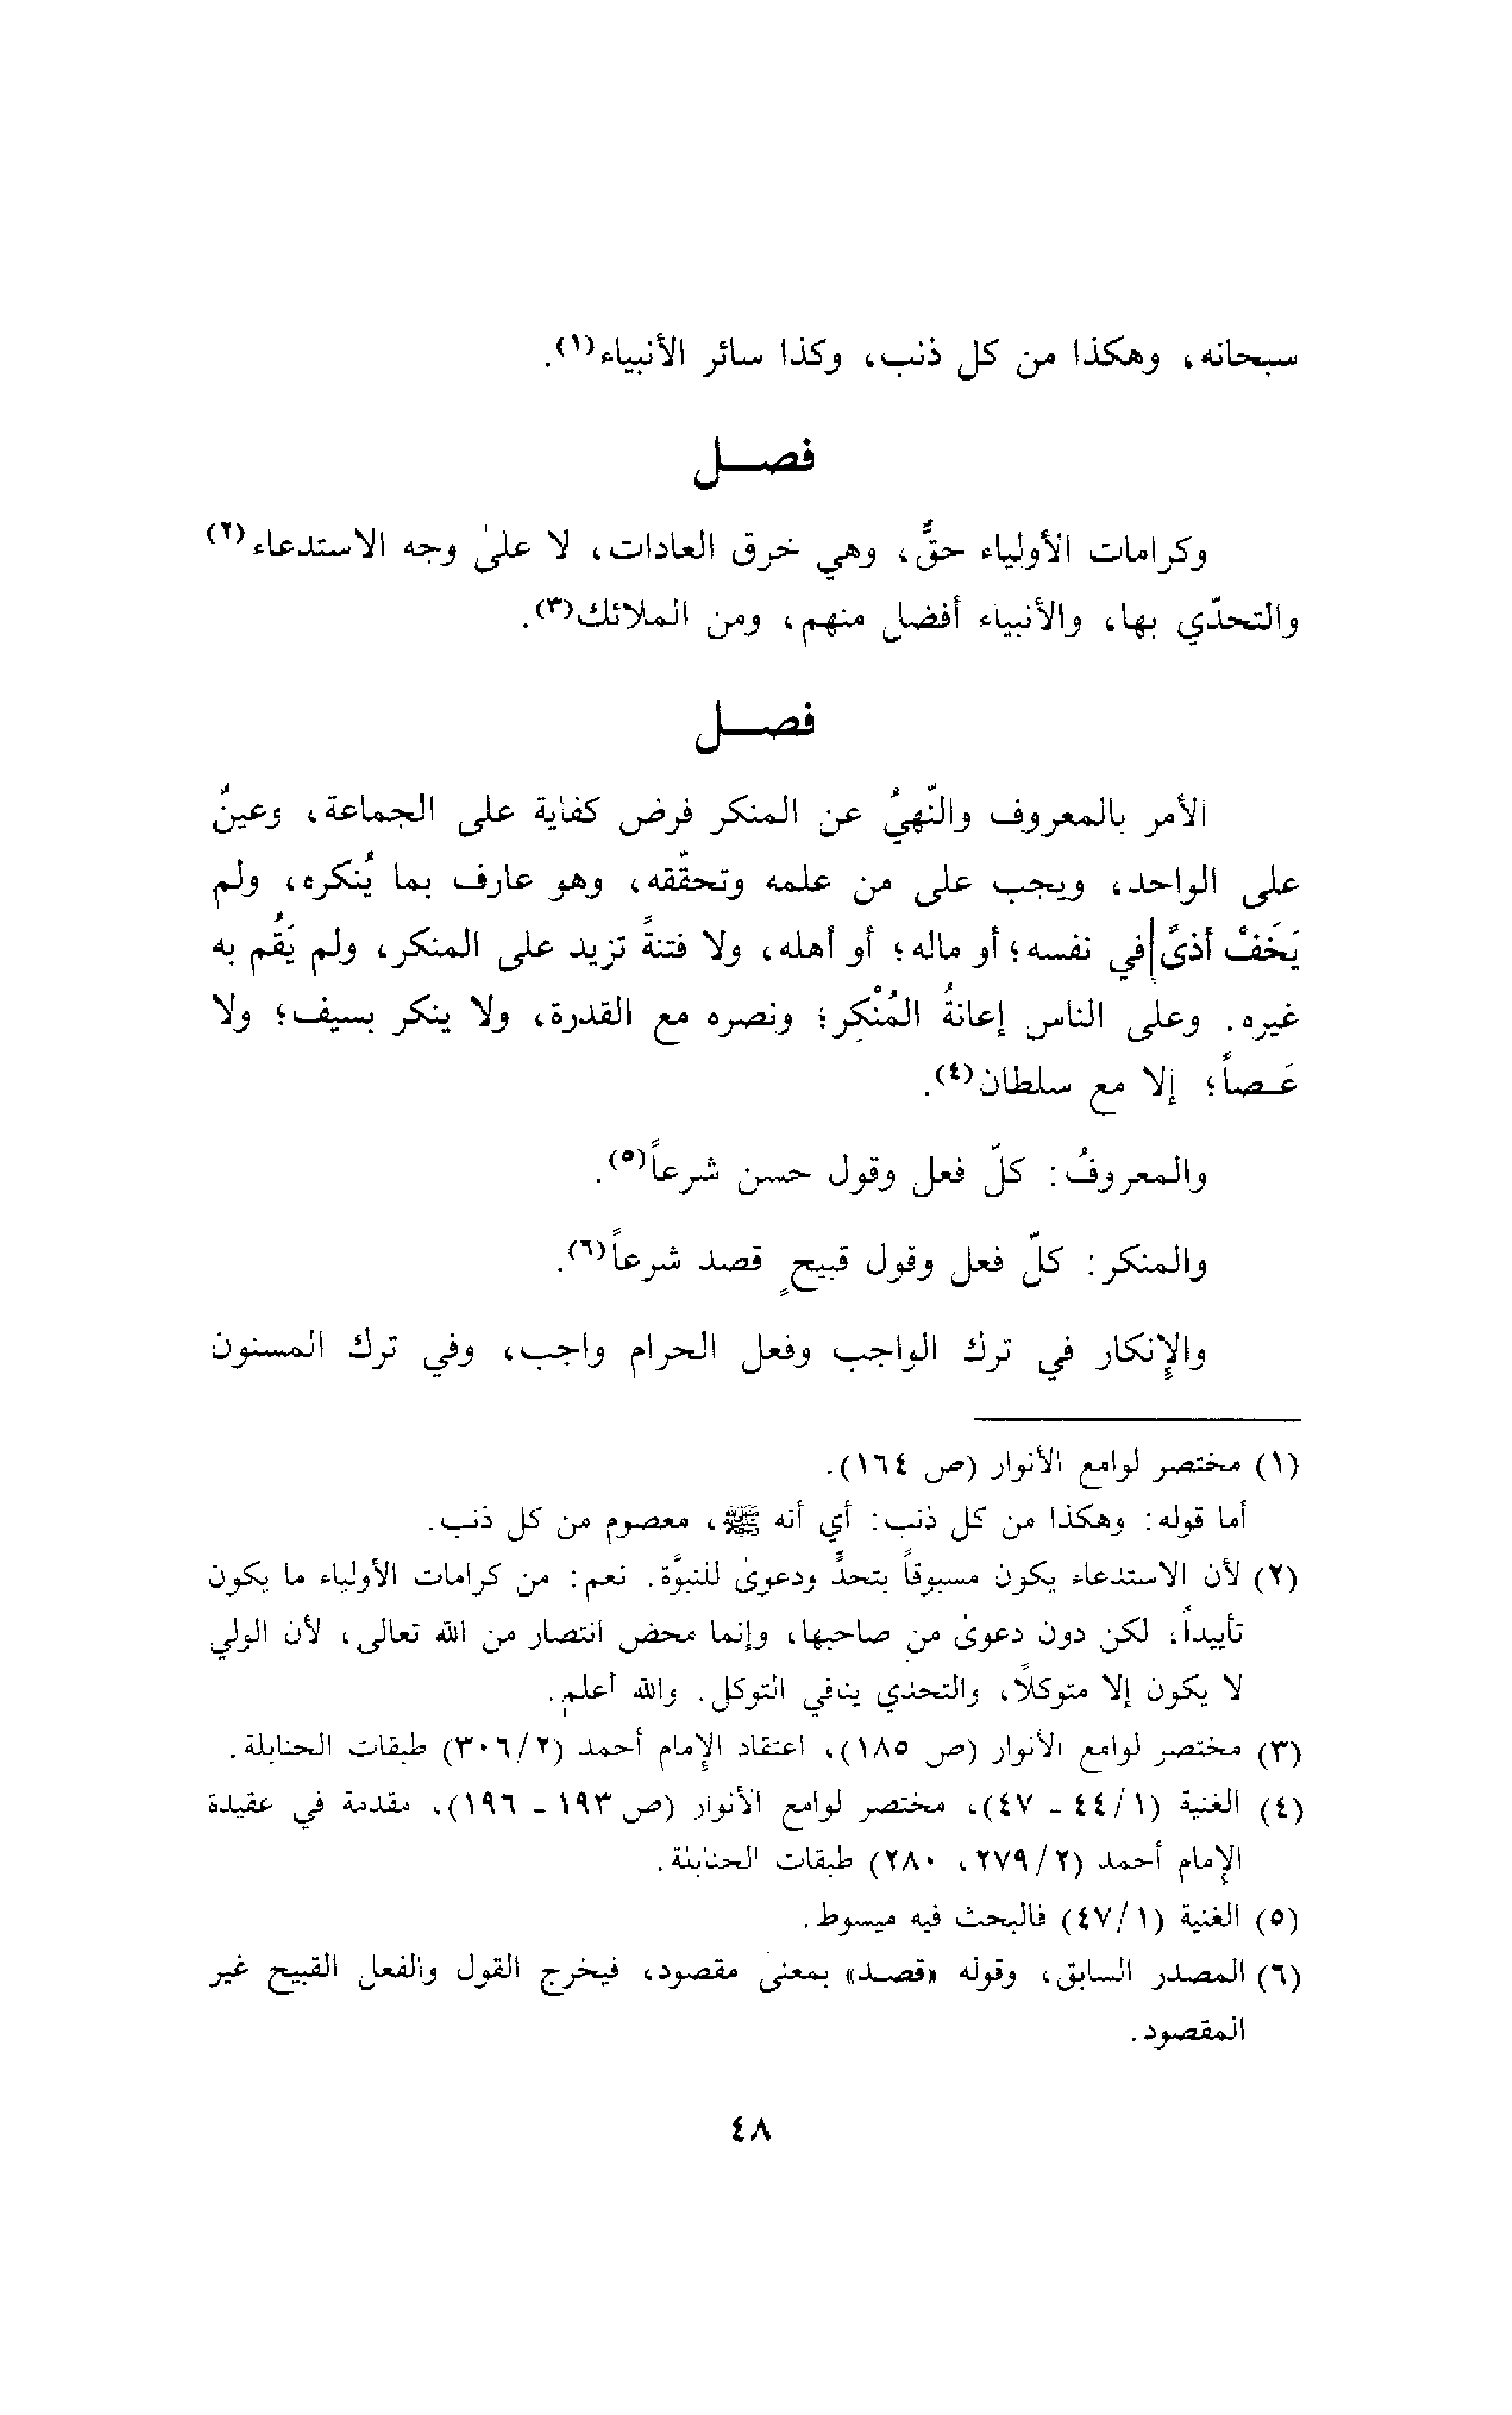 سبحانه، وهكذا من كل ذنب، وكذا سائر الأنبياء(١).
فصـل
وكرامات الأولياء حقٌّ، وهي خرق العادات، لا علىٰ وجه الاستدعاء(٢)
والتحدّي بها، والأنبياء أفضل منهم، ومن الملائك(٣).
فصـل
الأمر بالمعروف والنّهيُ عن المنكر فرض كفاية على الجماعة، وعينٌ
على الواحد، ويجب على من علمه وتحقّقه، وهو عارف بما يُنكره، ولم
يَخَفْ أذىً في نفسه؛ أو ماله؛ أو أهله، ولا فتنةً تزيد على المنكر، ولم يَقُم به
غيره. وعلى الناس إعانةُ المُنْكِر؛ ونصره مع القدرة، ولا ينكر بسيف؛ ولا
عَـصاً؛ إلا مع سلطان(٤).
والمعروفُ: كلّ فعل وقول حسن شرعاً(٥).
والمنكر: كلّ فعل وقول قبيحٍ قصد شرعاً(٦).
والإنكار في ترك الواجب وفعل الحرام واجب، وفي ترك المسنون
(١) مختصر لوامع الأنوار (ص ١٦٤).
أما قوله: وهكذا من كل ذنب: أي أنه ﷺ، معصوم من كل ذنب.
(٢) لأن الاستدعاء يكون مسبوقاً بتحدٍّ ودعوىٰ للنبوَّة. نعم: من كرامات الأولياء ما يكون
تأييداً، لكن دون دعوىٰ من صاحبها، وإنما محض انتصار من الله تعالى، لأن الولي
لا يكون إلا متوكلًا، والتحدي ينافي التوكل. والله أعلم.
(٣) مختصر لوامع الأنوار (ص ١٨٥)، اعتقاد الإمام أحمد (٣٠٦/٢) طبقات الحنابلة.
(٤) الغنية (٤٤/١ - ٤٧)، مختصر لوامع الأنوار (ص ١٩٣ - ١٩٦)، مقدمة في عقيدة
الإمام أحمد (٢٧٩/٢، ٢٨٠) طبقات الحنابلة.
(٥) الغنية (٤٧/١) فالبحث فيه مبسوط.
(٦) المصدر السابق، وقوله «قصـد» بمعنىٰ مقصود، فيخرج القول والفعل القبيح غير
المقصود.
٤٨